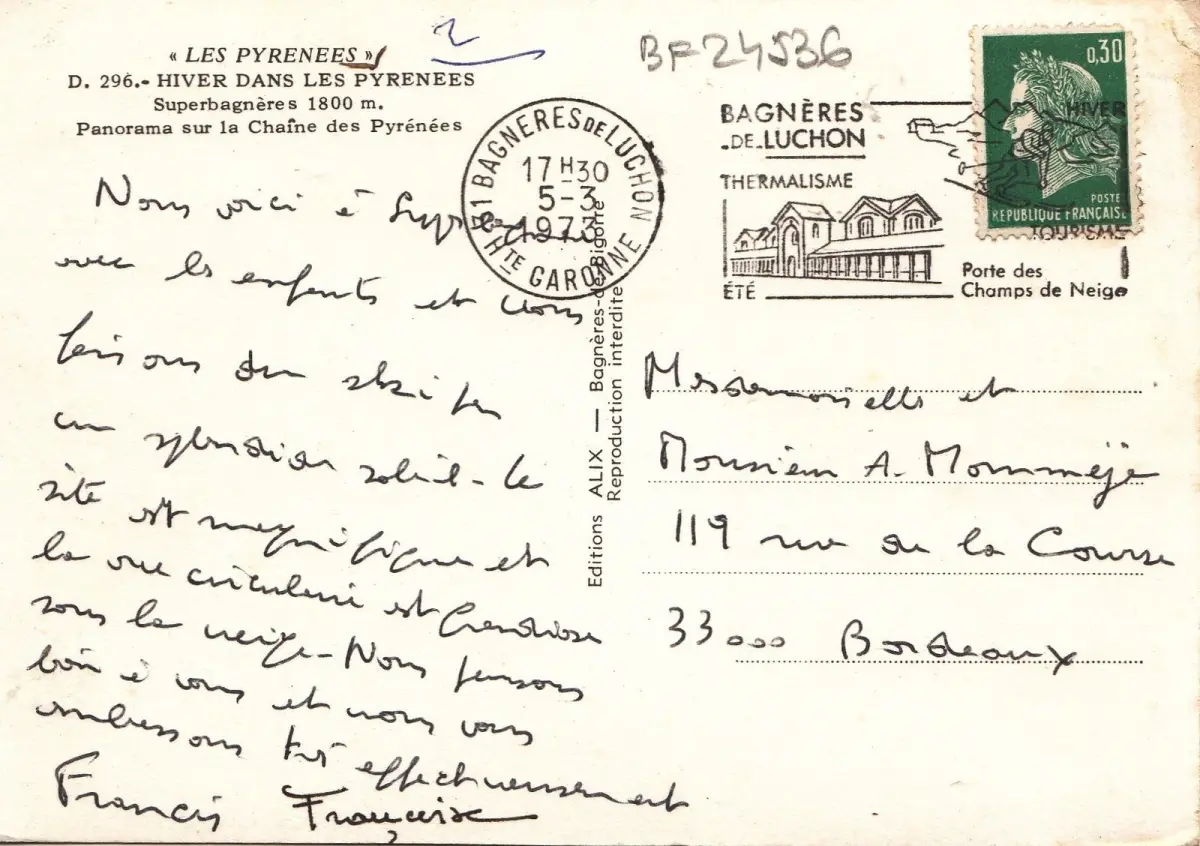 « LES PYRENEES »
D. 296.- HIVER DANS LES PYRENEES
Superbagnères 1800 m.
Panorama sur la Chaîne des Pyrénées
2
BF24536
31 BAGNERES DE LUCHON
17H30
5-3
1973
HTE GARONNE
BAGNÈRES
-DE-LUCHON
THERMALISME
ÉTÉ
HIVER
TOURISME
Porte des
Champs de Neige
0,30
POSTE
REPUBLIQUE FRANÇAISE
Nous voici à
avec les enfants et nous
faisons du ski par
un splendide soleil - le
site est magnifique et
la vue circulaire est grandiose
sous la neige - Nous pensons
bien à vous et nous vous
embrassons très affectueusement
Francis Françoise
Editions ALIX — Bagnères-de-Bigorre
Reproduction interdite
Mesdemoiselles et
Monsieur A. Mommèje
119 rue de la Course
33000 Bordeaux